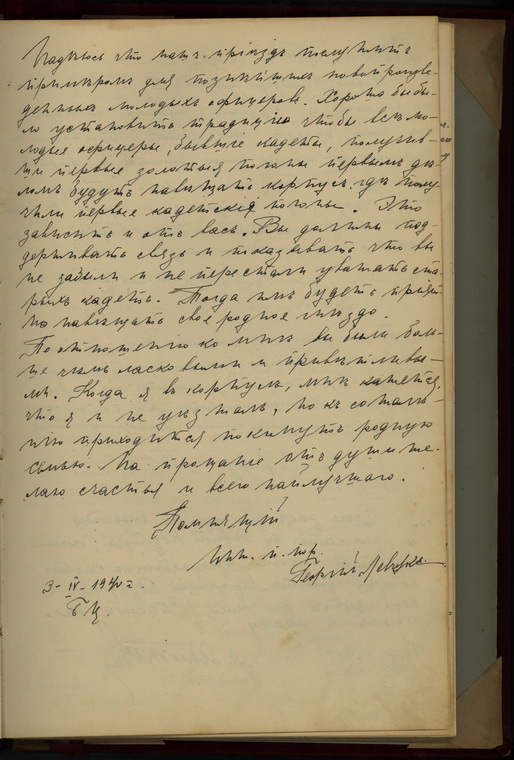 Надѣюсь что нашъ прiѣздъ послужитъ
примѣромъ для позднѣйшихъ новопроизве-
денныхъ молодыхъ офицеровъ. Хорошо бы бы-
ло установить традицiю чтобы всѣ мо-
лодые офицеры, бывшiе кадеты, получив-
ши первые золотыя погоны первымъ дѣ-
ломъ будутъ навѣщать корпусъ гдѣ полу-
чили первые кадетскiя погоны. Это
зависитъ и отъ васъ. Вы должны под-
держивать связь и показывать что вы
не забыли и не перестали уважать ста-
рыхъ кадетъ. Тогда имъ будетъ прiят-
но навѣщать свое родное гнѣздо.
По отношенiю ко мнѣ вы были боль-
ше чѣмъ ласковыми и привѣтливы-
ми. Когда я въ корпусѣ, мнѣ кажется,
что я и не уѣзжалъ, но къ сожалѣ-
нiю приходится покинуть родную
семью. На прощанiе отъ души же-
лаю счастья и всего наилучшаго.
Помнящiй
инж. п. пор.
Георгiй
3-IV-1940 г.
Б Ц.